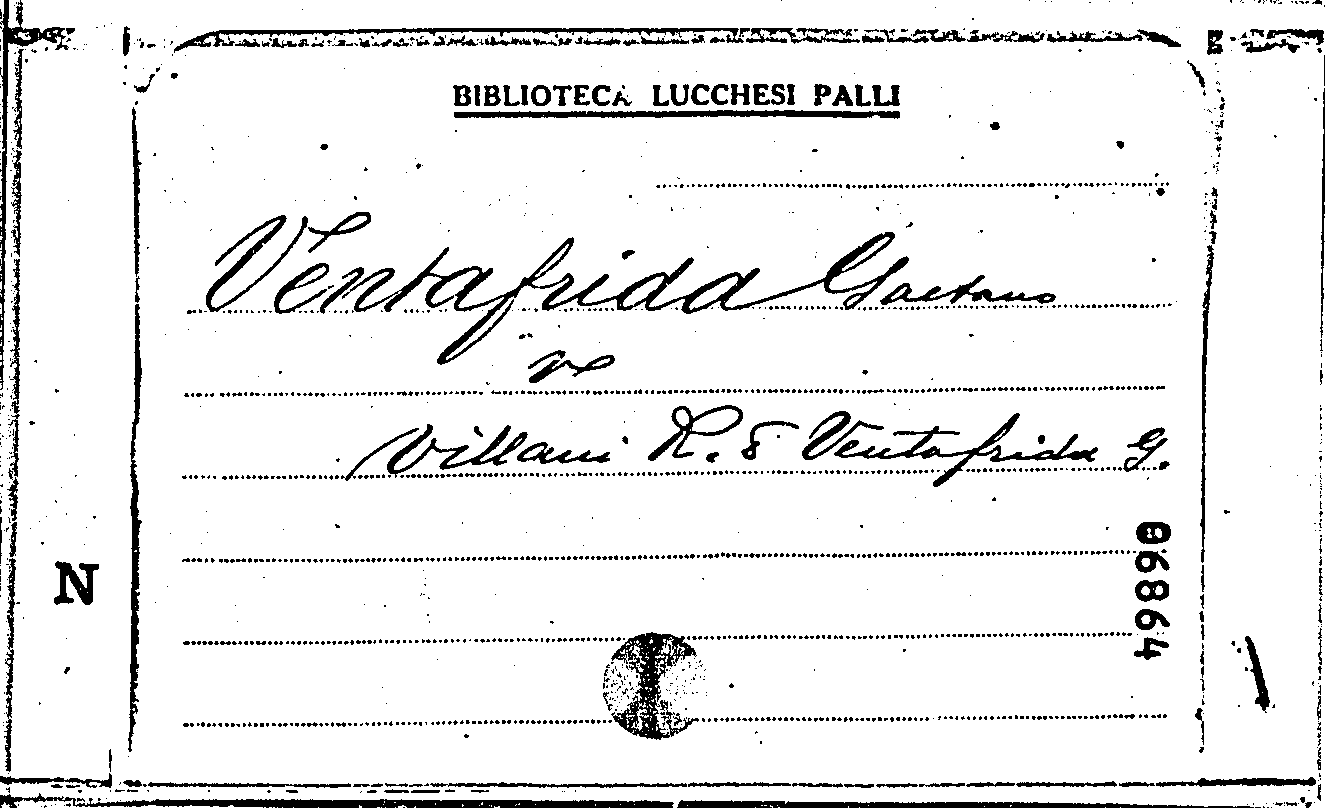 BIBLIOTECA LUCCHESI PALLI
Ventafrida Gaetano
Villani R. & Ventafrida G.
06864
N